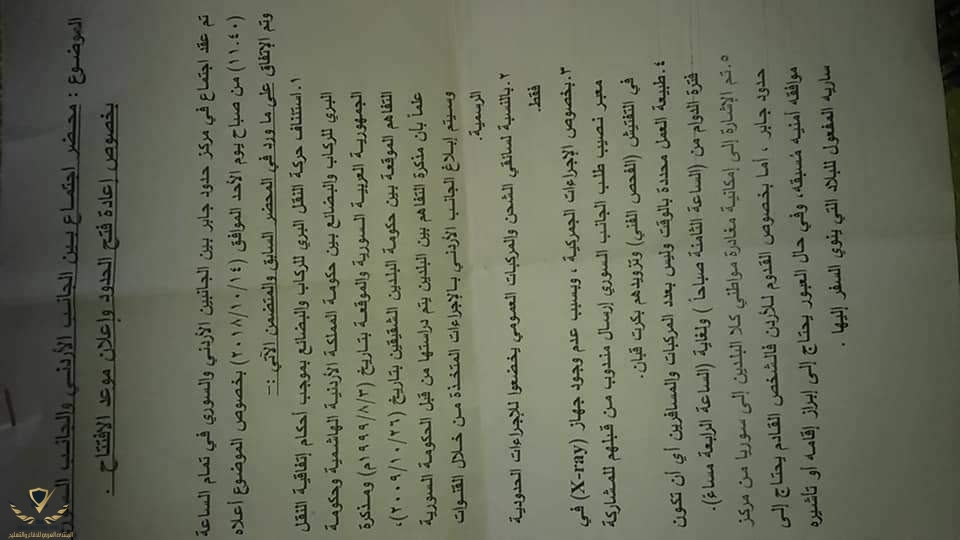 الموضوع : محضر اجتماع بين الجانب الأردني والجانب السوري
بخصوص إعادة فتح الحدود وإعلان موعد الافتتاح .
تم عقد اجتماع في مركز حدود جابر بين الجانبين الأردني والسوري في تمام الساعة
(١١.٤٠) من صباح يوم الأحد الموافق (٢٠١٨/١٠/١٤) بخصوص الموضوع أعلاه
وتم الإتفاق على ما ورد في المحضر السابق والمتضمن الآتي :-
١. استئناف حركة النقل البري للركاب والبضائع بموجب أحكام إتفاقية النقل
البري للركاب والبضائع بين حكومة المملكة الأردنية الهاشمية وحكومة
الجمهورية العربية السورية والموقعة بتاريخ (١٩٩٩/٨/٣م) ومذكرة
التفاهم الموقعة بين حكومة البلدين الشقيقين بتاريخ (٢٠٠٩/١٠/٢٦)،
علماً بأن مذكرة التفاهم بين البلدين يتم دراستها من قبل الحكومة السورية
وسيتم إبلاغ الجانب الأردني بالإجراءات المتخذة من خلال القنوات
الرسمية.
٢. بالنسبة لسائقي الشحن والمركبات العمومي يخضعوا للإجراءات الحدودية
فقط.
٣. بخصوص الإجراءات الجمركية ، وبسبب عدم وجود جهاز (X-ray) في
معبر نصيب طلب الجانب السوري إرسال مندوب من قبلهم للمشاركة
في التفتيش (الفحص الفني) وتزويدهم بكرت قبان.
٤. طبيعة العمل محددة بالوقت وليس بعدد المركبات والمسافرين أي ان تكون
فترة الدوام من (الساعة الثامنة صباحاً ) ولغاية (الساعة الرابعة مساءً).
٥. تم الإشارة إلى إمكانية مغادرة مواطني كلا البلدين إلى سوريا من مركز
حدود جابر ، أما بخصوص القدوم للأردن فالشخص القادم يحتاج إلى
موافقه أمنيه مُسبقه، وفي حال العبور يحتاج إلى إبراز إقامه او تاشيره
ساريه المفعول للبلاد التي ينوي السفر إليها .
المنتدى العربي للدفاع والتسليح